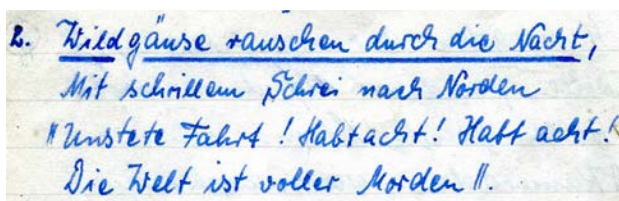 2. Wildgänse rauschen durch die Nacht,
Mit schrillem Schrei nach Norden
"Unstete Fahrt! Habt acht! Habt acht!
Die Welt ist voller Morden".